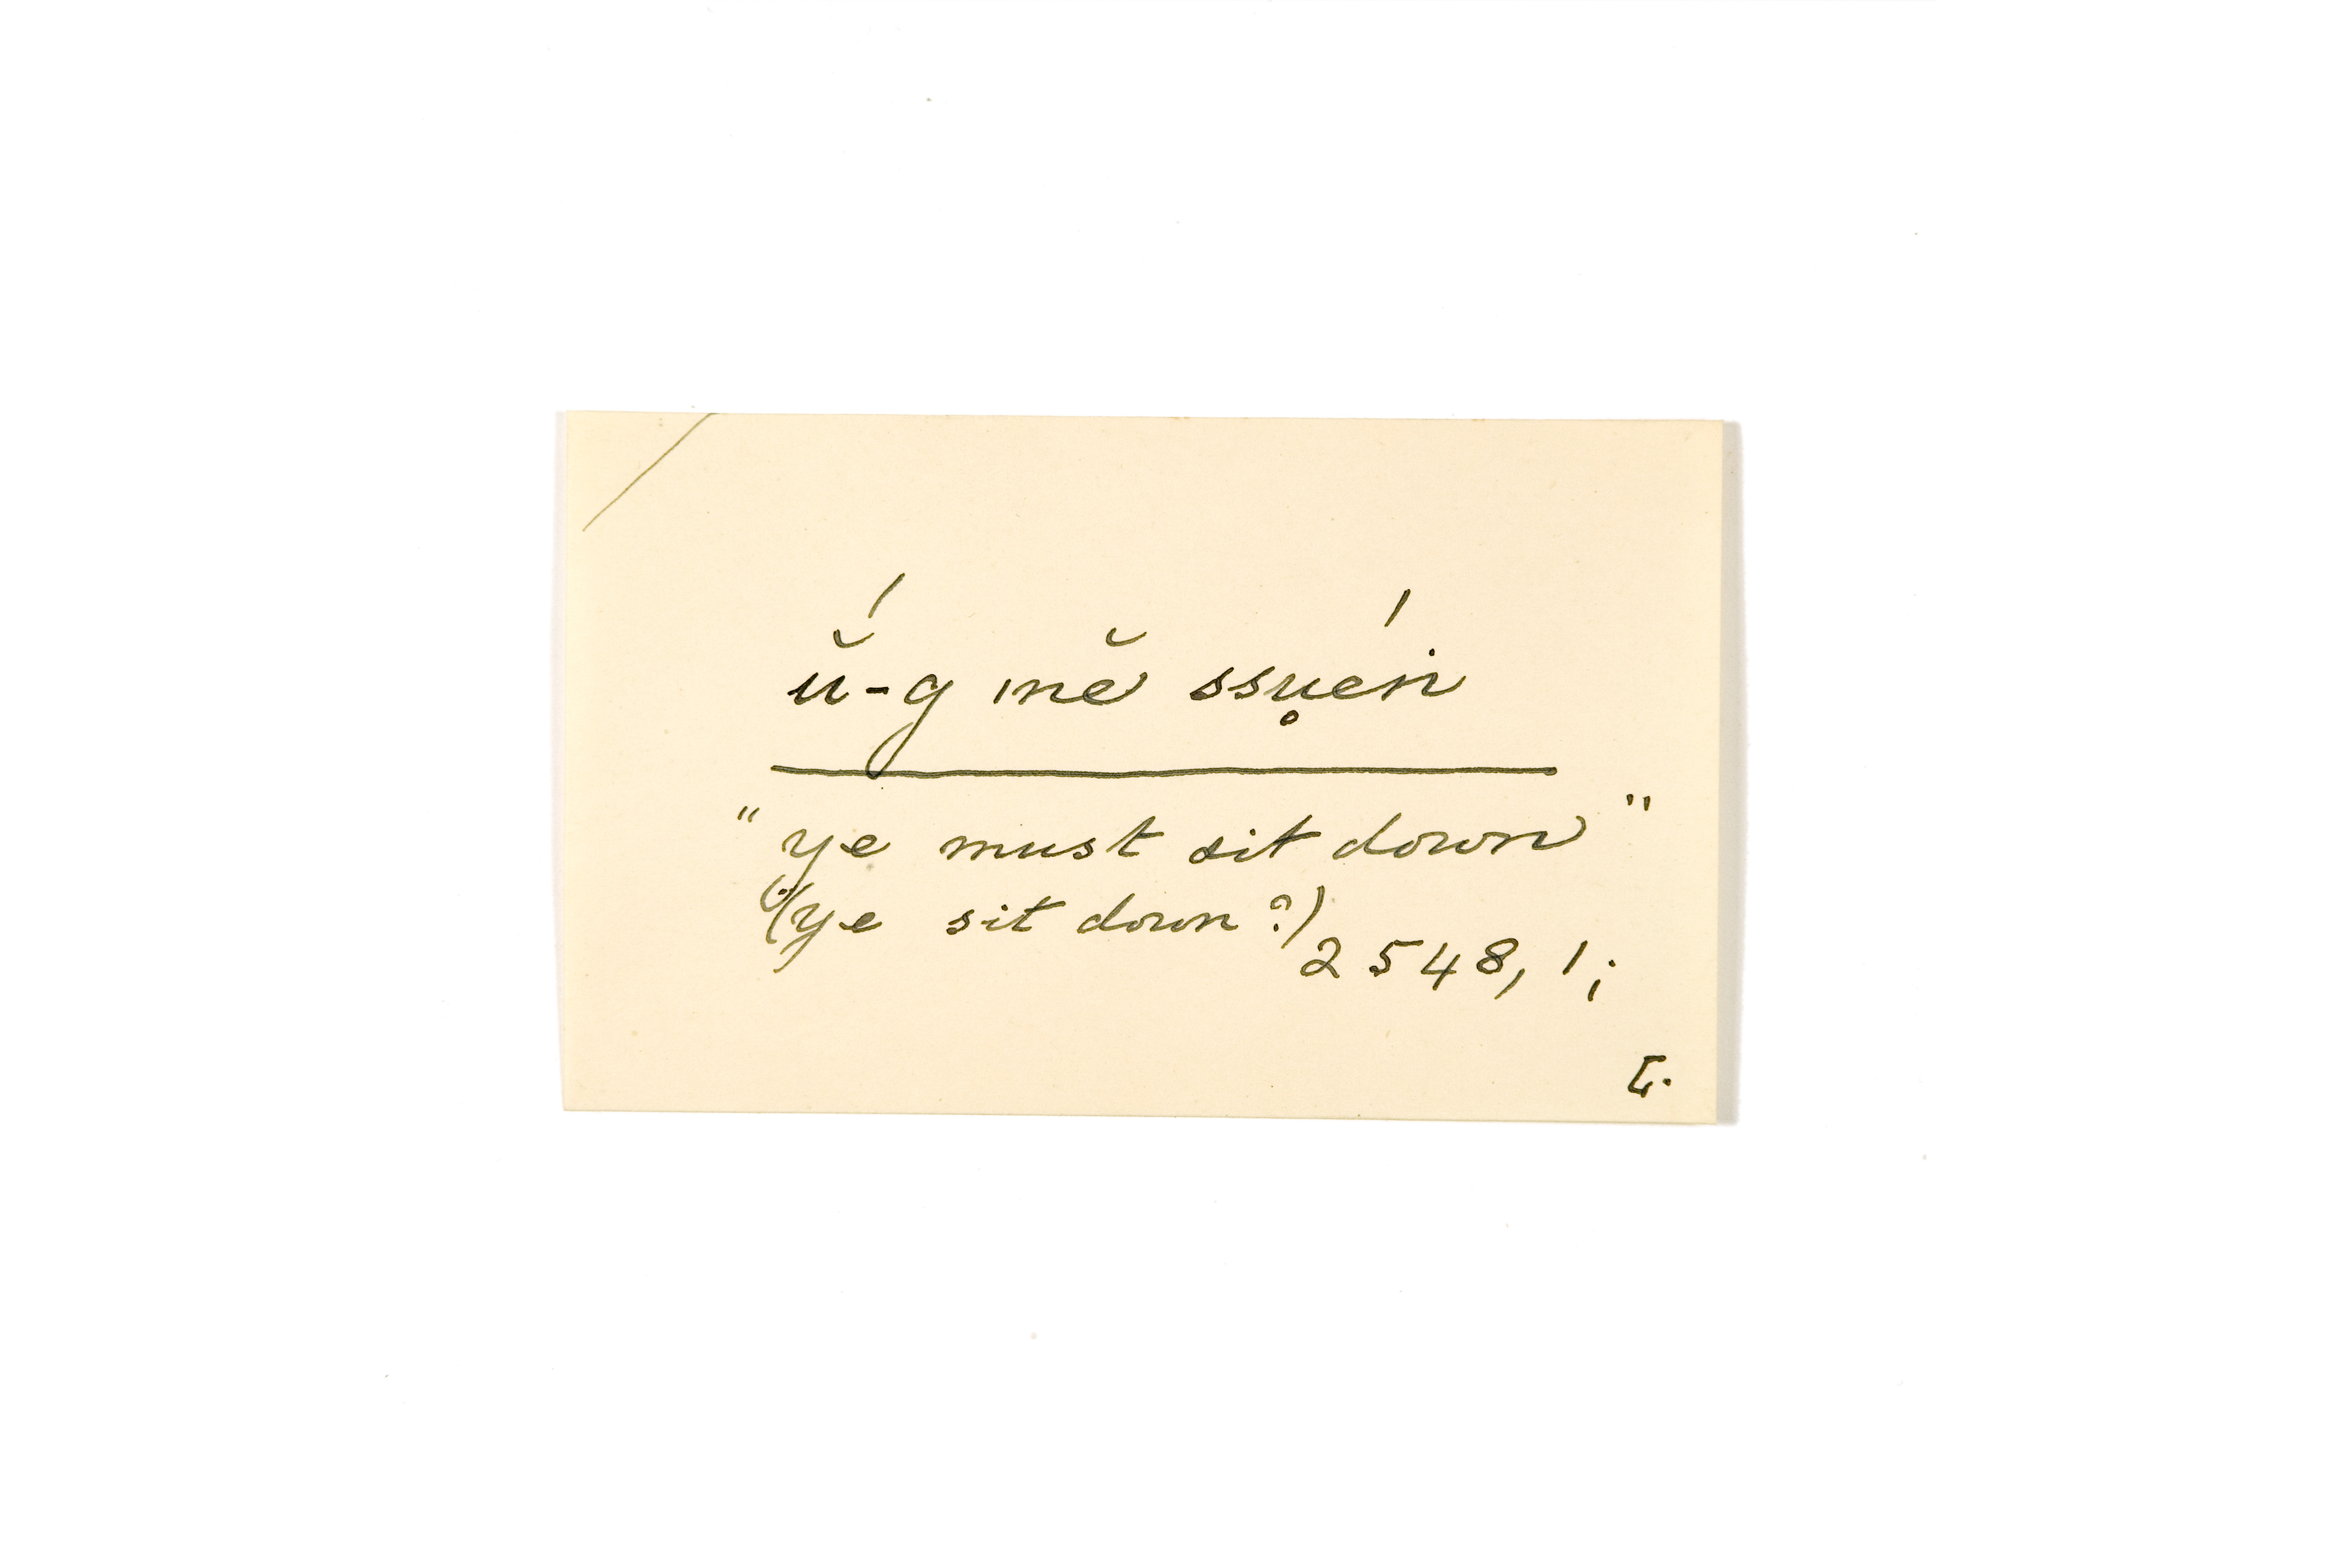 ŭ́-g mĕ ssu̥éṅ
"ye must sit down"
(ye sit down?)
2548, 1;
L.